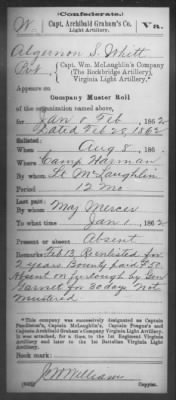 (Confederate.)
W. Capt. Archibald Graham's Co. Va.
Light Artillery.
Algernon S. Whitt
Pvt, Capt. Wm. McLaughlin's Company
(The Rockbridge Artillery),
Virginia Light Artillery.*
Appears on
Company Muster Roll
of the organization named above,
for Jan & Feb, 1862
Dated Feb 28, 1862
Enlisted:
When Aug 8, 186
Where Camp Harman
By whom Lt McLaughlin
Period 12 Mo
Last paid:
By whom Maj Mercer
To what time Jan 1, 186
Present or absent Absent
Remarks: Feb 13 Reenlisted for
2 years. Bounty paid $50
Absent on furlough by Gen
Garnet for 30 days Not
Mustered
*This company was successively designated as Captain
Pendleton's, Captain McLaughlin's, Captain Poague's and
Captain Archibald Graham's Company Virginia Light Artillery.
It was attached, for a time, to the 1st Regiment Virginia
Artillery and later to the 1st Battalion Virginia Light
Artillery.
Book mark:
J W William
Copyist.